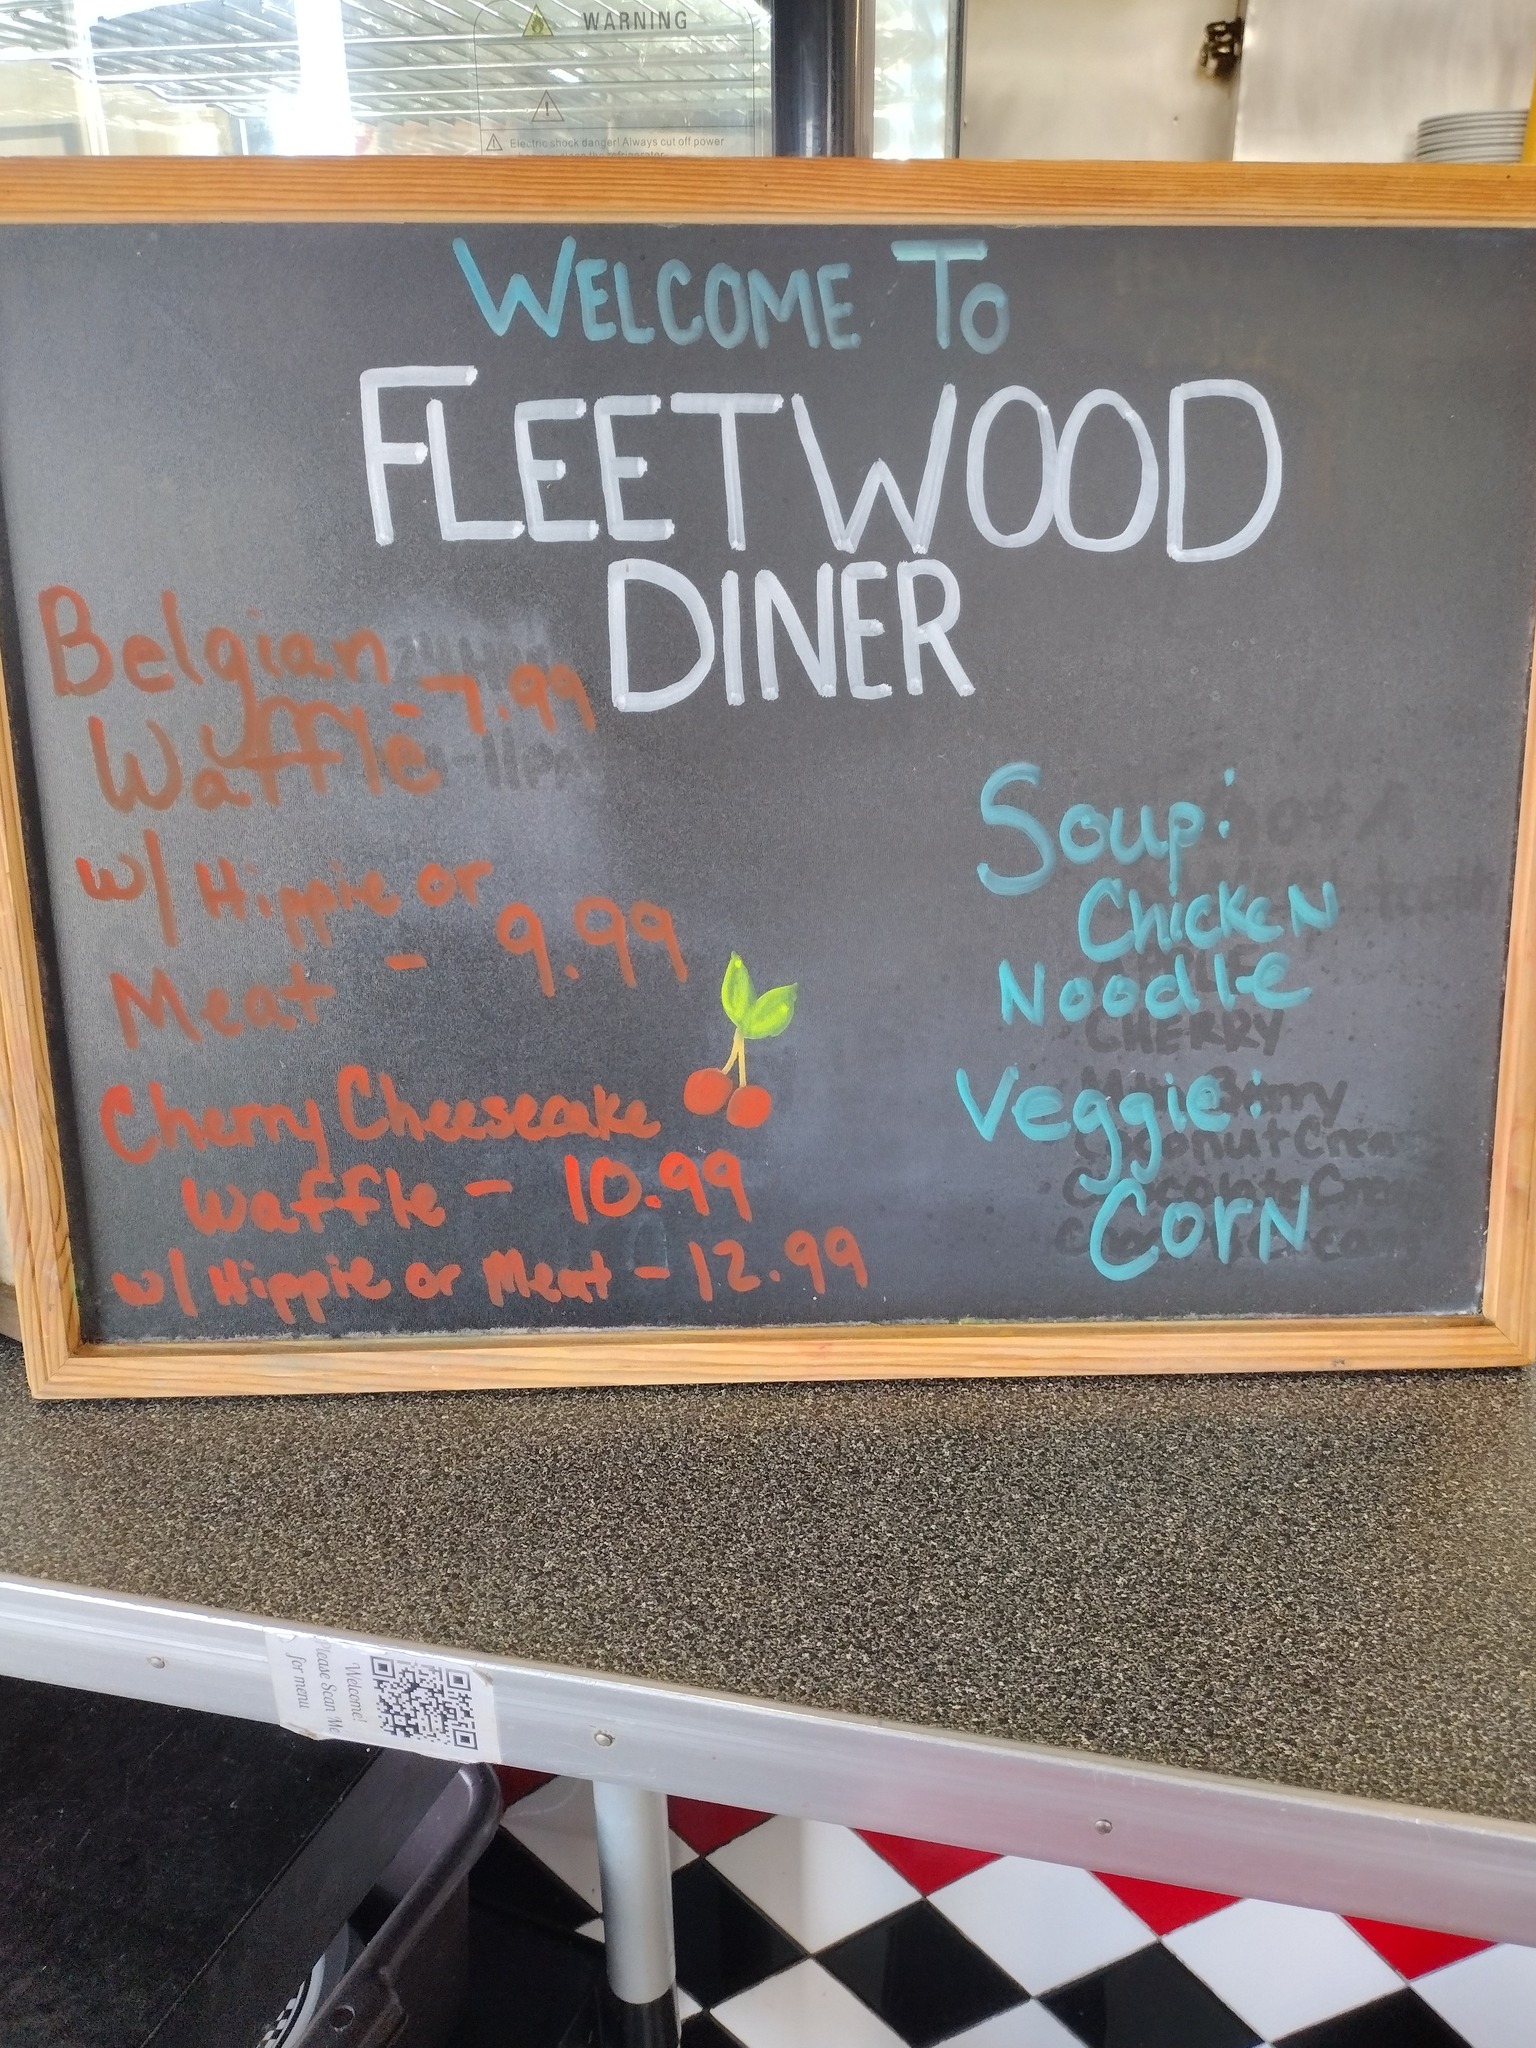 WARNING
Electric shock danger! Always cut off power
WELCOME TO
FLEETWOOD
DINER
Belgian
Waffle - 7.99
w/ Hippie or
Meat - 9.99
Cherry Cheesecake
Waffle - 10.99
w/ Hippie or Meat - 12.99
Soup:
Chicken
Noodle
Veggie:
Corn
CHERRY
Coconut Cream
Welcome!
Please Scan Me
for menu